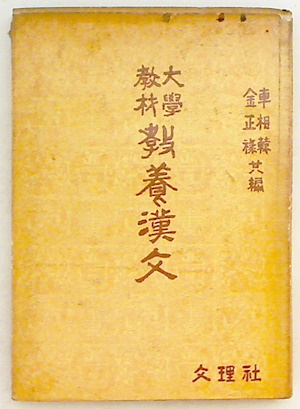 大學
教材
敎養漢文
車相轅
金正祿 共編
文理社